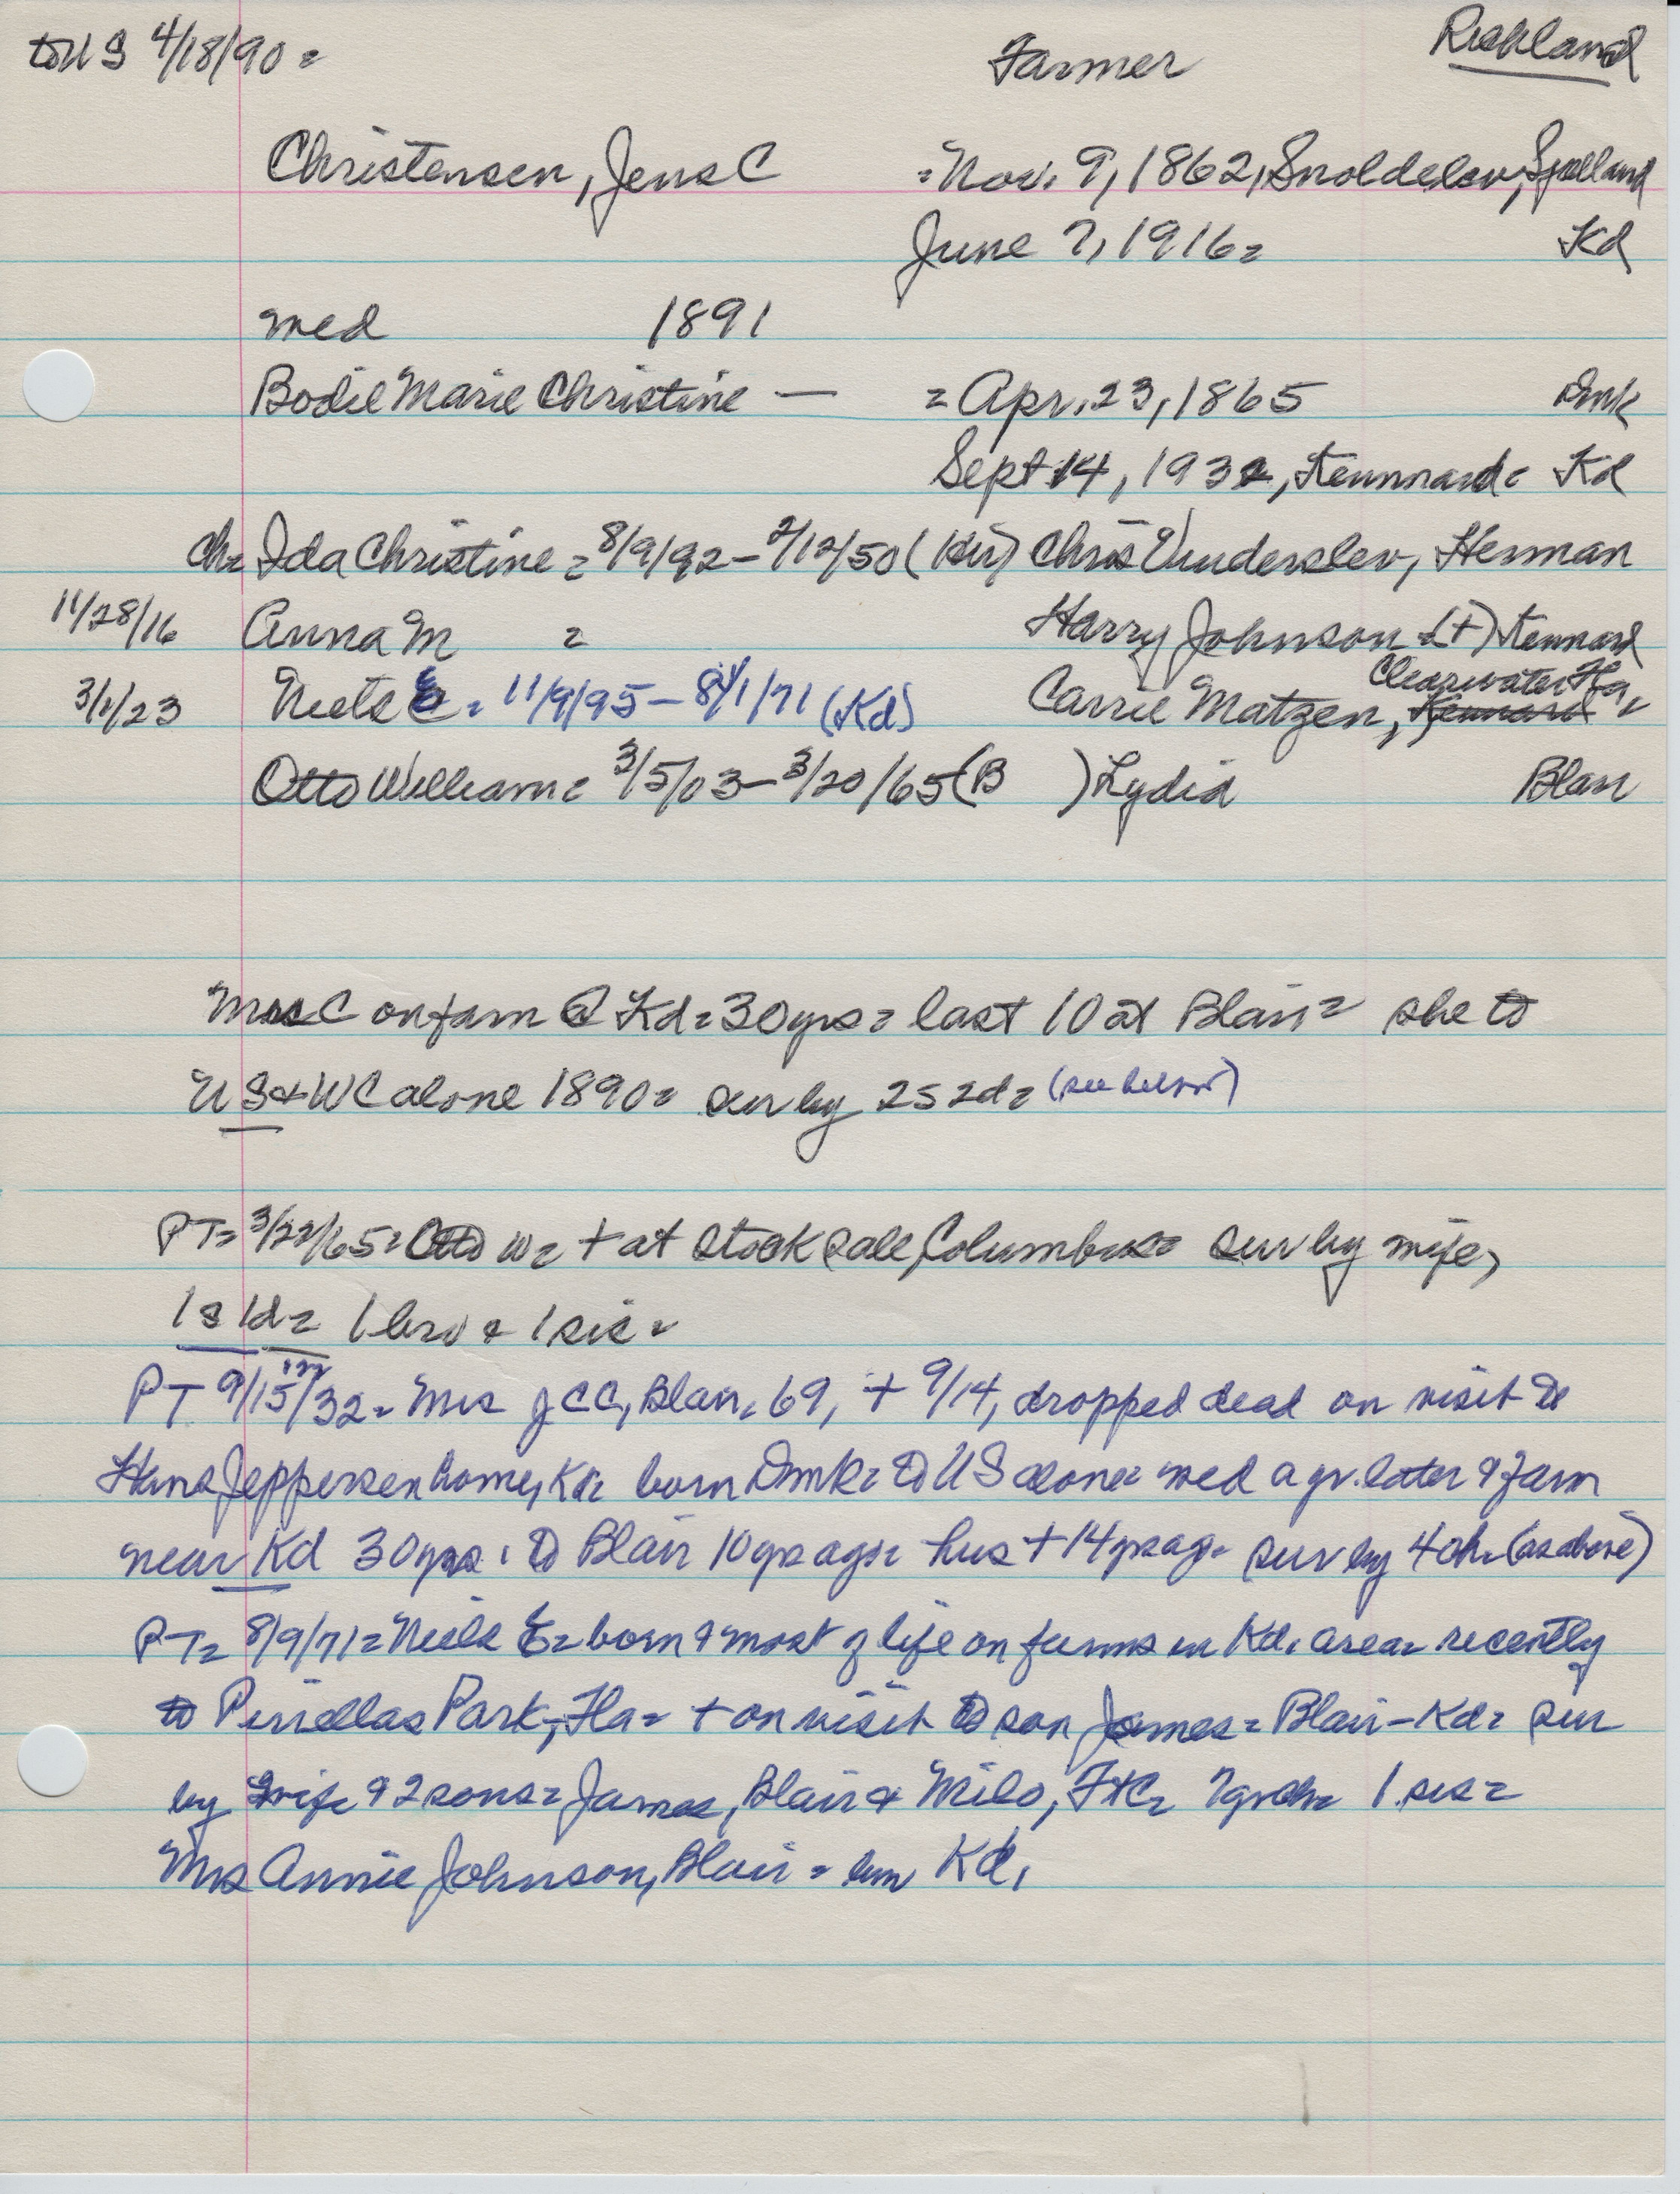 to US 4/18/90 = Farmer Richland
Christensen, Jens C = Nov. 9, 1862, Snoldelev, Sjelland
June 7, 1916 = Kd
med 1891
Bodil Marie Christine — = Apr. 23, 1865 Dmk
Sept 14, 1932, Kennard = Kd
ch = Ida Christine = 8/9/92 - 2/12/50 ( ) Chris Vunderslev, Herman
11/28/16 Anna M = Harry Johnson = (+) Kennard
Clearwater Fla
3/1/23 Niels E = 11/9/95 - 8/1/71 (Kd) Carrie Matzen, Kennard
Otto William = 3/5/03 - 3/20/65 (B ) Lydia Blair
Mrs C on farm @ Kd = 30 yrs = last 10 at Blair = she to
US & WC alone 1890 = sur by 2s 2d = (see below)
PT = 3/22/65 = Otto W = + at stock sale, Columbus = sur by wife,
1s 1d = 1 bro & 1 sis =
PT 9/15/32 = Mrs J C C, Blair, 69, + 9/14, dropped dead on visit to
Hans Jeppersen home, Kd = born Dmk = to US alone = med a yr. later & farm
near Kd 30 yrs = to Blair 10 yrs ago = hus + 14 yrs ago = sur by 4 ch = (as above)
PT = 8/9/71 = Niels E = born & most of life on farms in Kd. area = recently
to Pinellas Park, Fla = + on visit to son James = Blair - Kd = sur
by wife & 2 sons = James, Blair & Milo, FtC = 7 grch = 1 sis =
Mrs Annie Johnson, Blair = bur Kd.